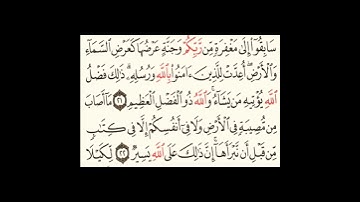 سَابِقُوٓا۟ إِلَىٰ مَغْفِرَةٍ مِّن رَّبِّكُمْ وَجَنَّةٍ عَرْضُهَا كَعَرْضِ ٱلسَّمَآءِ
وَٱلْأَرْضِ أُعِدَّتْ لِلَّذِينَ ءَامَنُوا۟ بِٱللَّهِ وَرُسُلِهِۦ ۚ ذَٰلِكَ فَضْلُ
ٱللَّهِ يُؤْتِيهِ مَن يَشَآءُ ۚ وَٱللَّهُ ذُو ٱلْفَضْلِ ٱلْعَظِيمِ ٢١ مَآ أَصَابَ
مِن مُّصِيبَةٍ فِى ٱلْأَرْضِ وَلَا فِىٓ أَنفُسِكُمْ إِلَّا فِى كِتَٰبٍ
مِّن قَبْلِ أَن نَّبْرَأَهَآ ۚ إِنَّ ذَٰلِكَ عَلَى ٱللَّهِ يَسِيرٌ ٢٢ لِّكَيْلَا